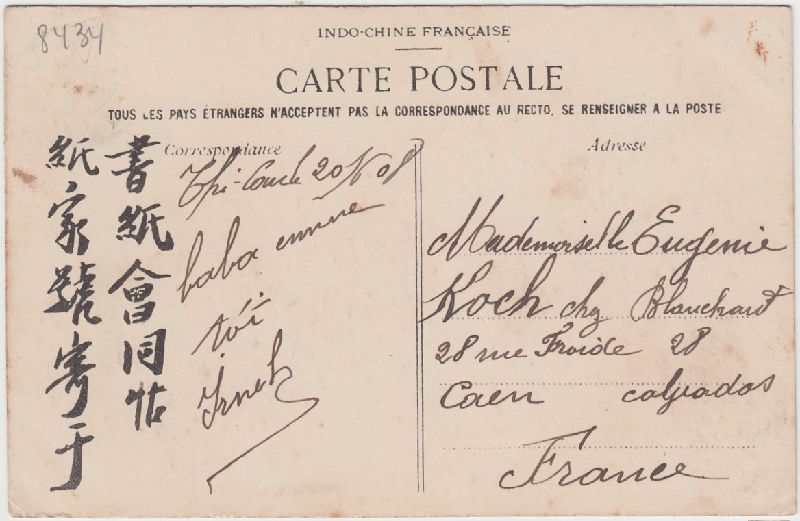 8434
INDO-CHINE FRANÇAISE
CARTE POSTALE
TOUS LES PAYS ÉTRANGERS N'ACCEPTENT PAS LA CORRESPONDANCE AU RECTO, SE RENSEIGNER A LA POSTE
Correspondance
書紙會同帖
紙家號寄于
20
baba
tôi
Adresse
Mademoiselle Eugenie
Koch chez Blanchard
28 rue Froide 28
Caen calvados
France